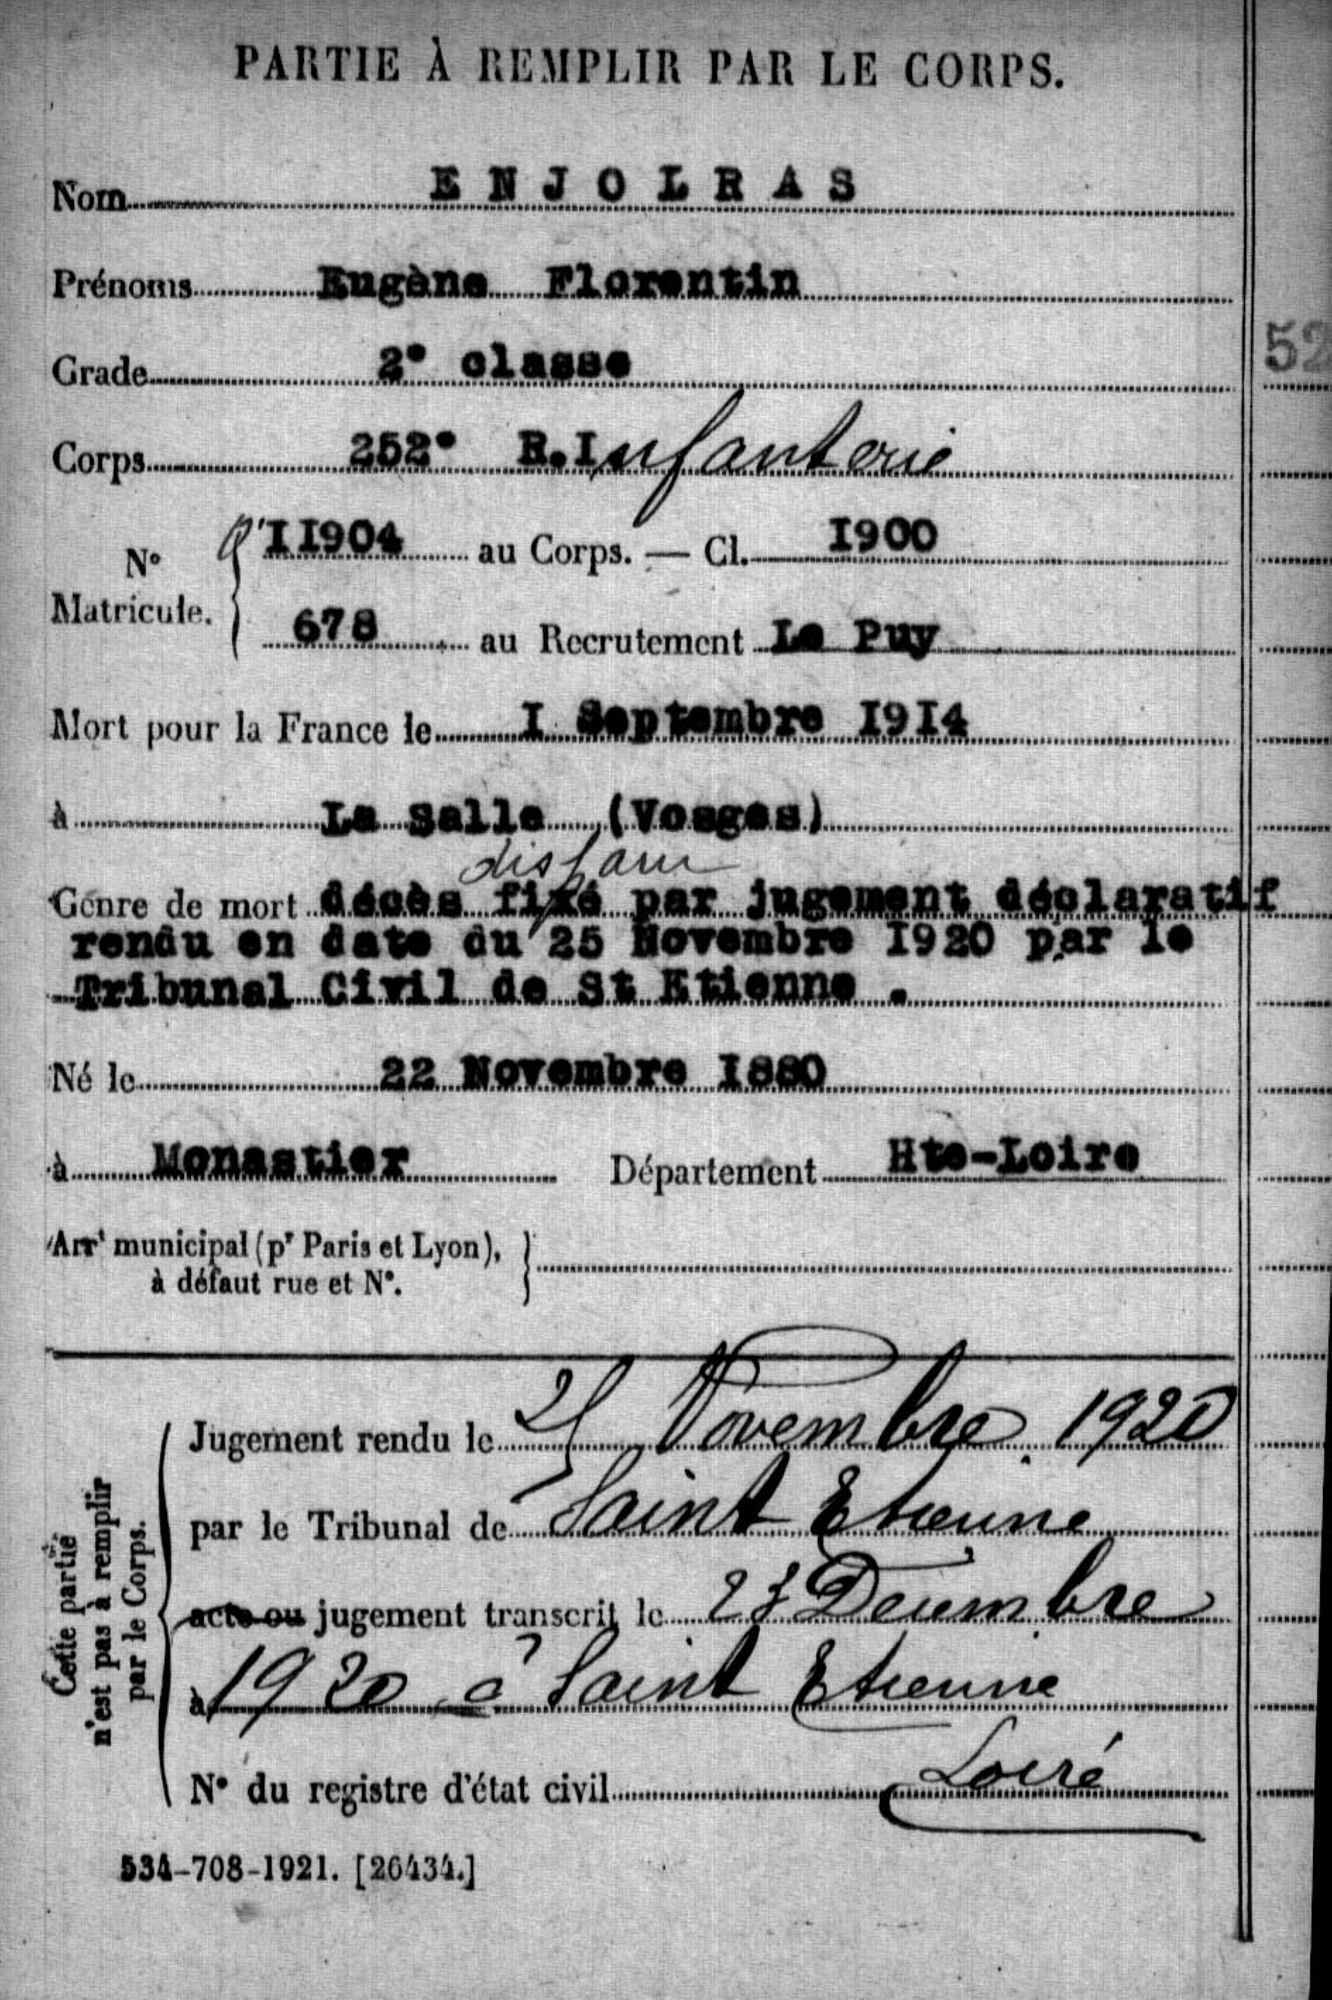 PARTIE À REMPLIR PAR LE CORPS.
Nom ENJOLRAS
Prénoms Eugène Florentin
Grade 2° classe
52
Corps 252° R.Infanterie
N° Matricule. 11904 au Corps. — Cl. 1900
678 au Recrutement Le Puy
Mort pour la France le I Septembre 1914
à La Salle (Vosges)
disparu
Genre de mort décès fixé par jugement déclaratif
rendu en date du 25 Novembre 1920 par le
Tribunal Civil de St Etienne .
Né le 22 Novembre 1880
à Monastier Département Hte-Loire
Arrt municipal (pr Paris et Lyon),
à défaut rue et N°.
Cette partie
n'est pas à remplir
par le Corps.
Jugement rendu le 25 Novembre 1920
par le Tribunal de Saint Etienne
acte ou jugement transcrit le Décembre
à 1920 à Saint Etienne
N° du registre d'état civil Loire
534-708-1921. [26434.]